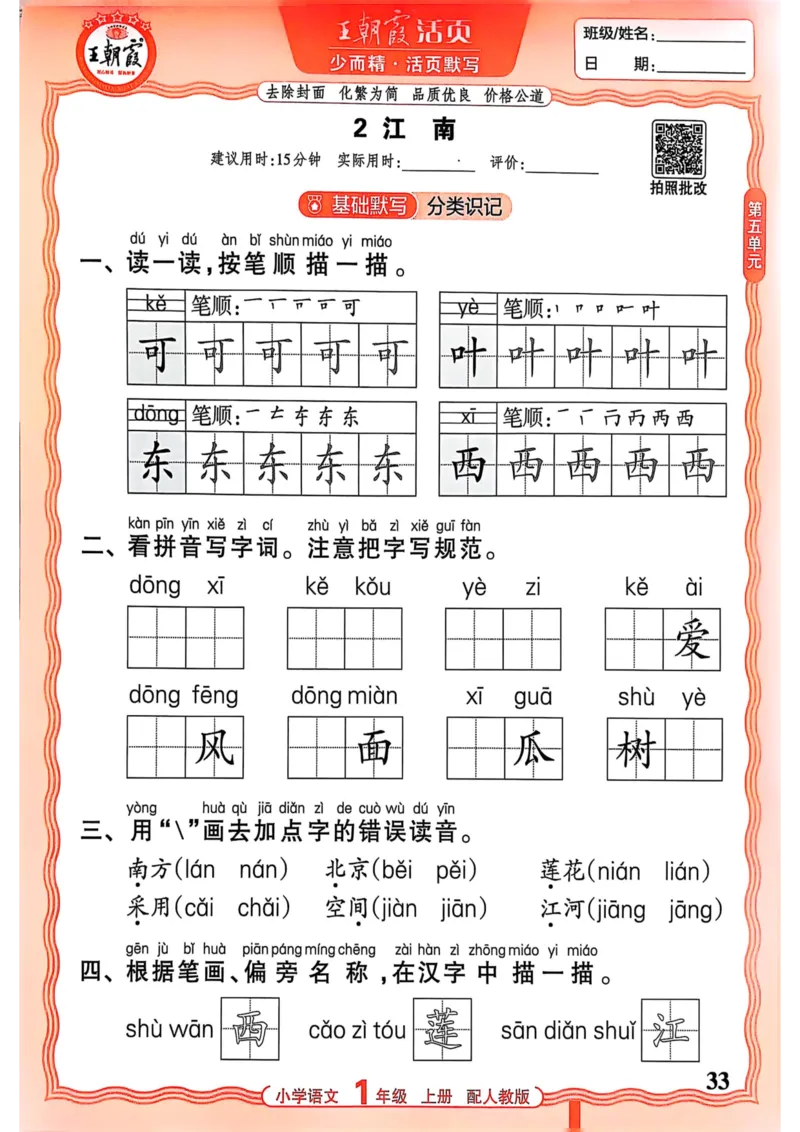 王朝霞
王朝霞活页
少而精·活页默写
班级/姓名:
日 期:
去除封面 化繁为简 品质优良 价格公道
2 江 南
建议用时:15分钟 实际用时: 评价:
拍照批改
基础默写 分类识记
第五单元
dú yi dú àn bǐ shùn miáo yi miáo
一、读一读,按笔顺描一描。
kě 笔顺:
可 可 可 可 可
yè 笔顺:
叶 叶 叶 叶 叶
dōng 笔顺:
东 东 东 东 东
xī 笔顺:
西 西 西 西 西
kàn pīn yīn xiě zì cí zhù yì bǎ zì xiě guī fàn
二、看拼音写字词。注意把字写规范。
dōng xī kě kǒu yè zi kě ài
爱
dōng fēng dōng miàn xī guā shù yè
风 面 瓜 树
yòng huà qù jiā diǎn zì de cuò wù dú yīn
三、用“\”画去加点字的错误读音。
南方(lán nán) 北京(běi pěi) 莲花(nián lián)
采用(cǎi chǎi) 空间(jiàn jiān) 江河(jiāng jāng)
gēn jù bǐ huà piān páng míng chēng zài hàn zì zhōng miáo yi miáo
四、根据笔画、偏旁名称,在汉字中描一描。
shù wān 西 cǎo zì tóu 莲 sān diǎn shuǐ 江
33
小学语文 1年级 上册 配人教版